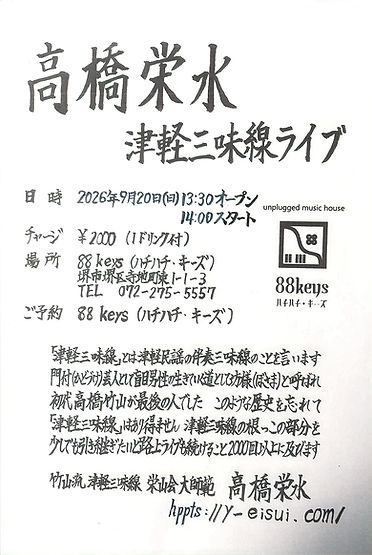 高橋栄水
津軽三味線ライブ
日 時 2026年9月20日(日) 13:30オープン
14:00スタート
unplugged music house
チャージ ¥2000 (1ドリンク付)
場 所 88 keys (ハチハチ・キーズ)
堺市堺区寺地町東1-1-3
TEL 072-275-5557
88keys
ハチハチ・キーズ
ご予約 88 keys (ハチハチ・キーズ)
「津軽三味線」とは津軽民謡の伴奏三味線のことを言います
門付(かどづけ)芸人として盲目男性の生きていく道として坊様(ぼさま)と呼ばれ
初代高橋竹山が最後の人でした このような歴史を忘れて
「津軽三味線」はあり得ません 津軽三味線の根っこの部分を
少しでも引き継ぎたいと路上ライブも続けること2000回以上に及びます
竹山流 津軽三味線 栄山会大師範 高橋栄水
hppts://y-eisui.com/